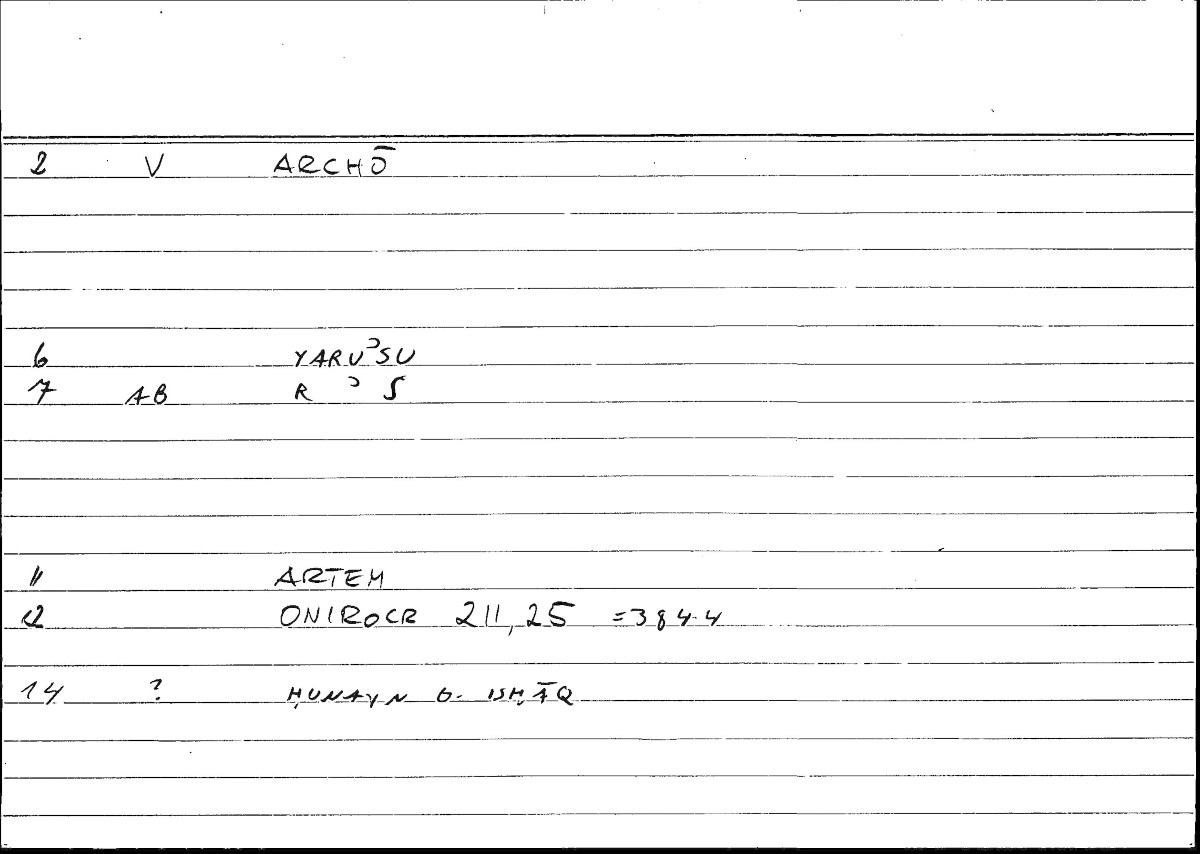 2 V ARCHŌ
6 YARUʾSU
7 AB R ʾ S
11 ARTEM
12 ONIROCR 211,25 =384.4
14 ? ḤUNAYN b. ISḤĀQ